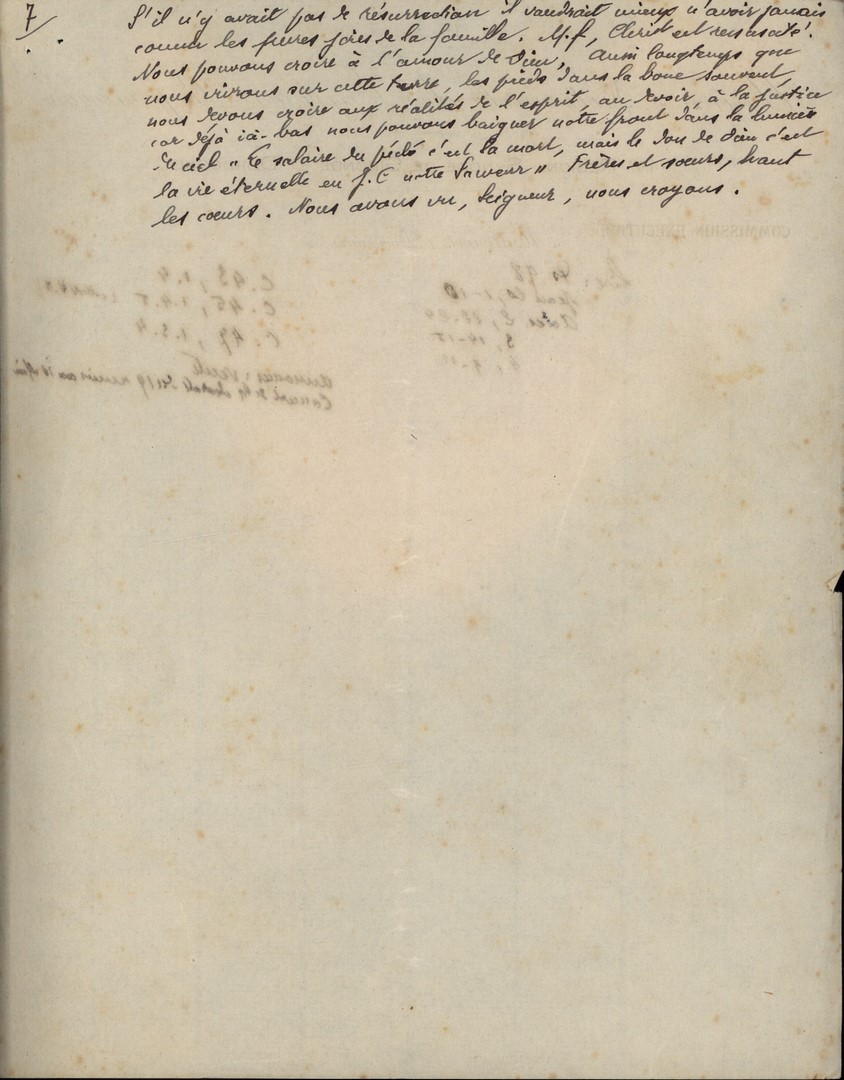 7
S'il n'y avait pas de résurrection il vaudrait mieux n'avoir jamais
connu les pures joies de la famille. M.f, Christ est ressuscité!
Nous pouvons croire à l'amour de Dieu, Aussi longtemps que
nous vivrons sur cette terre, les pieds dans la boue souvent,
nous devons croire aux réalités de l'esprit, au devoir, à la justice
car déjà ici-bas nous pouvons baigner notre front dans la lumière
du ciel "Le salaire du péché c'est la mort, mais le don de Dieu c'est
la vie éternelle en J.C notre Sauveur" Frères et sœurs, haut
les cœurs. Nous avons vu, Seigneur, nous croyons.
COMMISSION EXECUTIVE
Ps 98
C. 43, 1.4
C. 45, 1.4.5